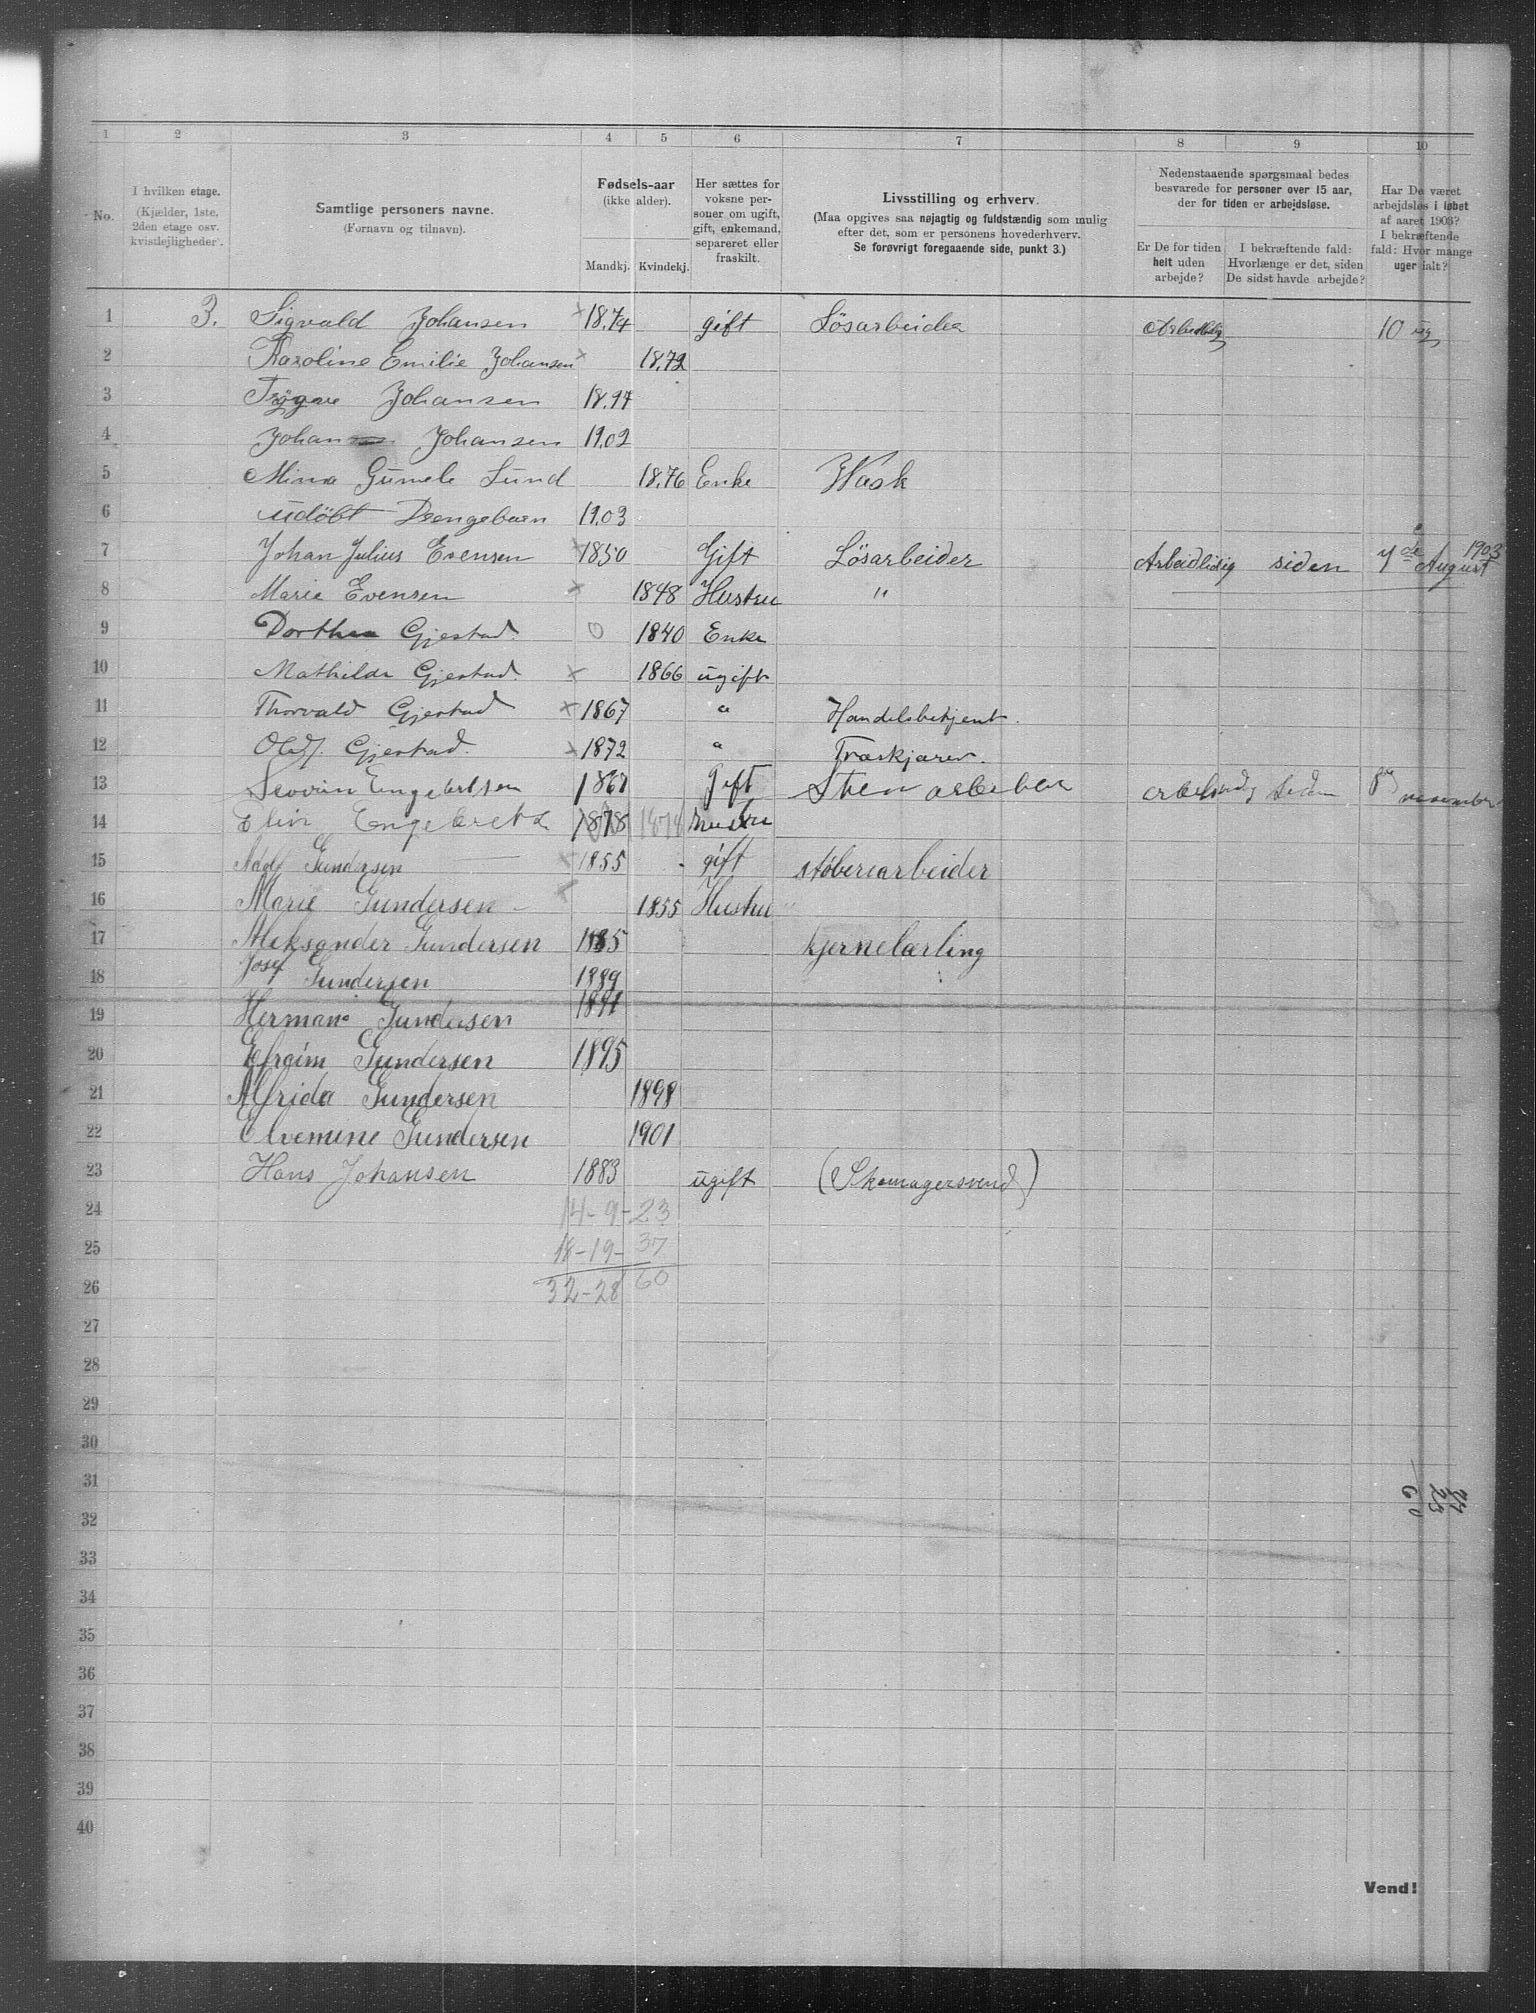 1 2 3 4 5 6 7 8 9 10
No.
I hvilken etage.
(Kjælder, 1ste,
2den etage osv.
kvistlejligheder).
Samtlige personers navne.
(Fornavn og tilnavn).
Fødsels-aar
(ikke alder).
Mandkj. Kvindekj.
Her sættes for
voksne per-
soner om ugift,
gift, enkemand,
separeret eller
fraskilt.
Livsstilling og erhverv.
(Maa opgives saa nøjagtig og fuldstændig som mulig
efter det, som er personens hovederhverv.
Se forøvrigt foregaaende side, punkt 3.)
Nedenstaaende spørgsmaal bedes
besvarede for personer over 15 aar,
der for tiden er arbejdsløse.
Er De for tiden
helt uden
arbejde?
I bekræftende fald:
Hvorlænge er det, siden
De sidst havde arbejde?
Har De været
arbejdsløs i løbet
af aaret 1903?
I bekræftende
fald: Hvor mange
uger ialt?
1 3. Sigvald Johansen × 18.74 gift Lösarbeider 10 ug
2 Karoline Emilie Johansen × 18.72
3 Trÿgve Johansen 18.97
4 Johan Johansen 19.02
5 Mina Lund 18.76 Enke Wask
6 udöbt Drengebarn 19.03
7 Johan Julius Evensen × 1850 Gift Lösarbeider Arbeidlidig siden 7de August 1903
8 Marie Evensen × 1848 Hustru "
9 Dorthea Gjestad. 0 1840 Enke
10 Mathilde Gjestad. × 1866 ugift
11 Thorvald Gjestad × 1867 " Handelsbetjent.
12 Olaf. Gjestad. × 1872 " Træskjærer.
13 Severin Engebretsen 1867 Gift Sten arbeider november
14 Elin 1878 1878 hustru
15 Gundersen × 1855 gift støberiarbeider
16 Marie Gundersen × 1855 Hustru "
17 Aleksander Gundersen 1885 kjernelærling
18 Josef Gundersen 1889
19 Herman Gundersen 1891
20 Efraim Gundersen 1895
21 Alfrida Gundersen 1898
22 Elvemine Gundersen 1901
23 Hans Johansen 1883 ugift (Skomagersvend)
24 14-9-23
25 18-19-37
26 32-28 60
27
28
29
30
31
32
33
34
35
36
37
38
39
40
Vend!